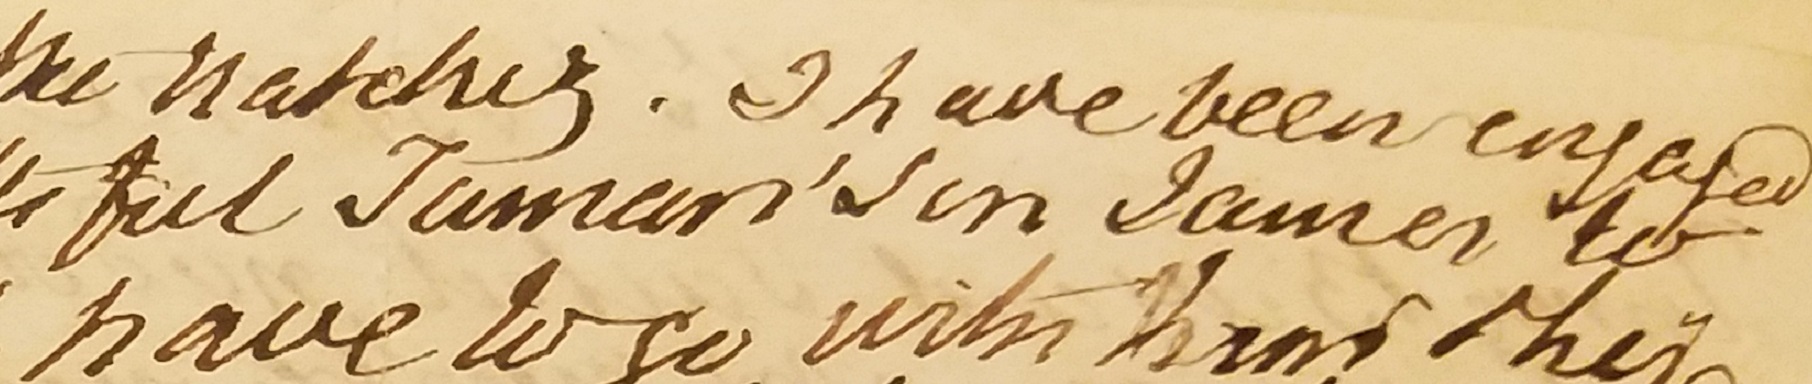 the Natchez. I have been engaged
to ful Inman's in James to
have to go with him they